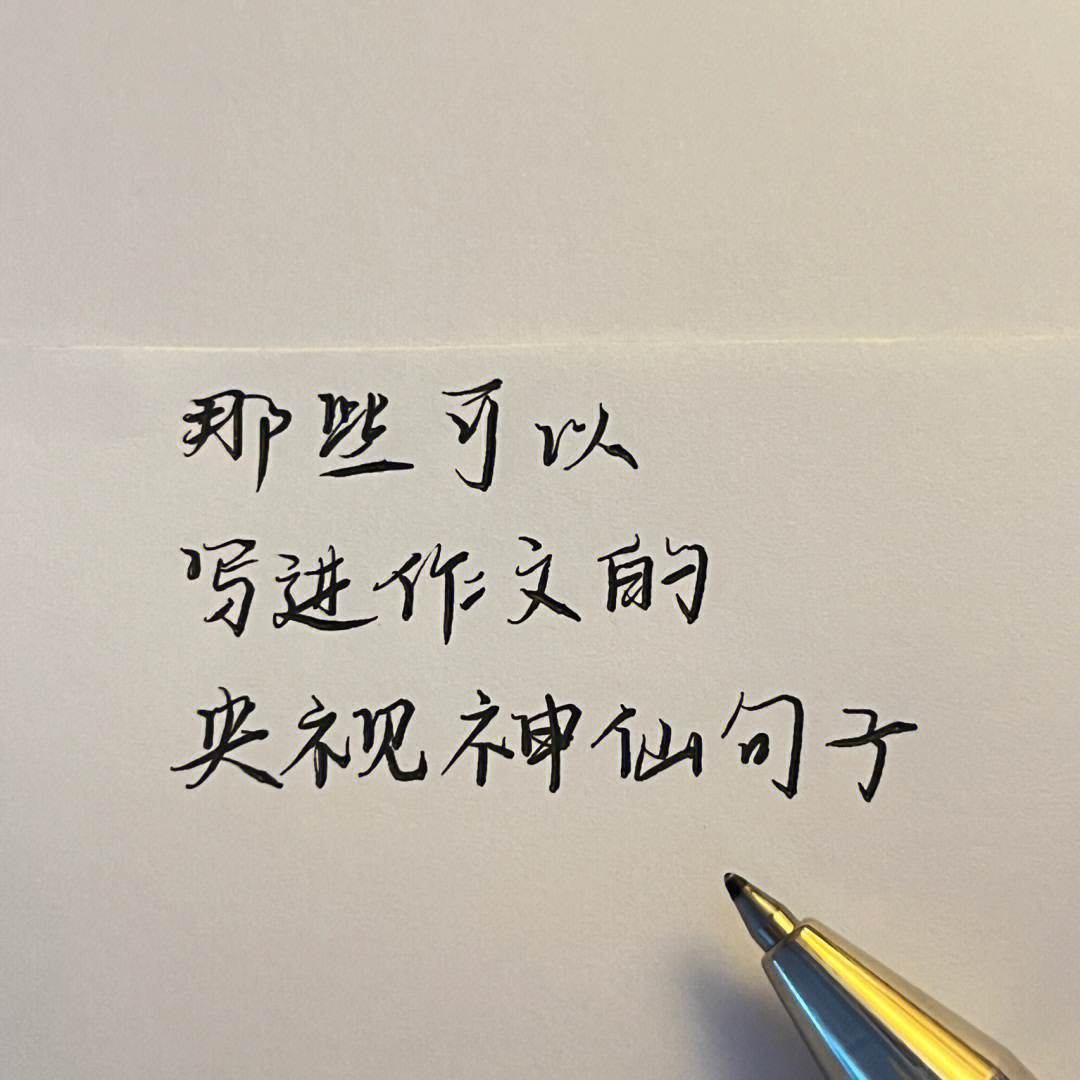 那些可以
写进作文的
央视神仙句子